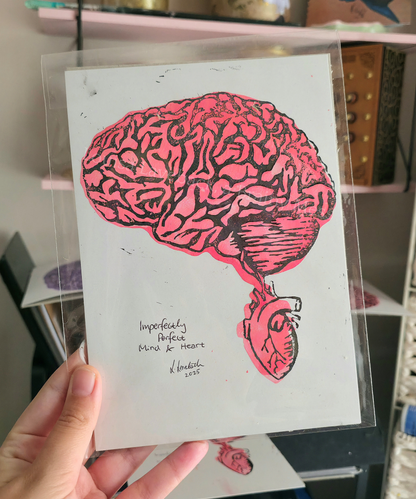 Imperfectly
Perfect
Mind & Heart
2025